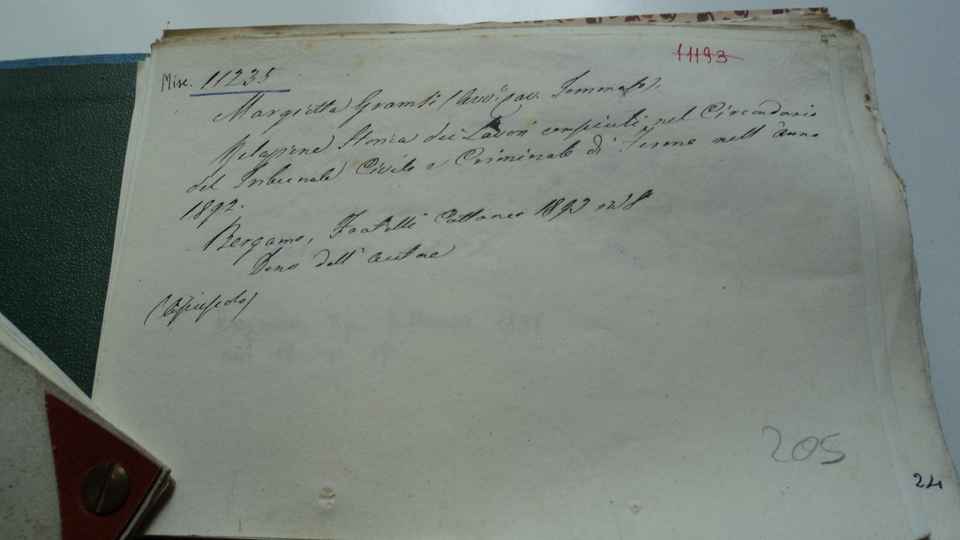 Misc. 11235
11193
Margietta Gramsi (Avv.° cav. Tommaso).
Relazione Storica dei Lavori compiuti nel Circondario
del Tribunale Civile e Criminale di Fermo nell'anno
1892.
Bergamo, Fratelli Cattaneo 1892 in 8
Dono dell'autore
(Opuscolo)
205
24